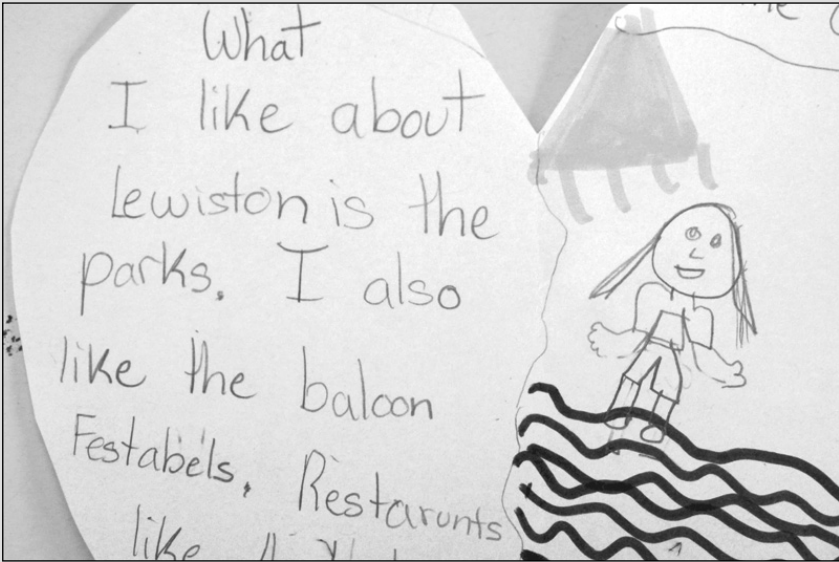 What
I like about
Lewiston is the
parks. I also
like the baloon
Festabels. Restarunts
like